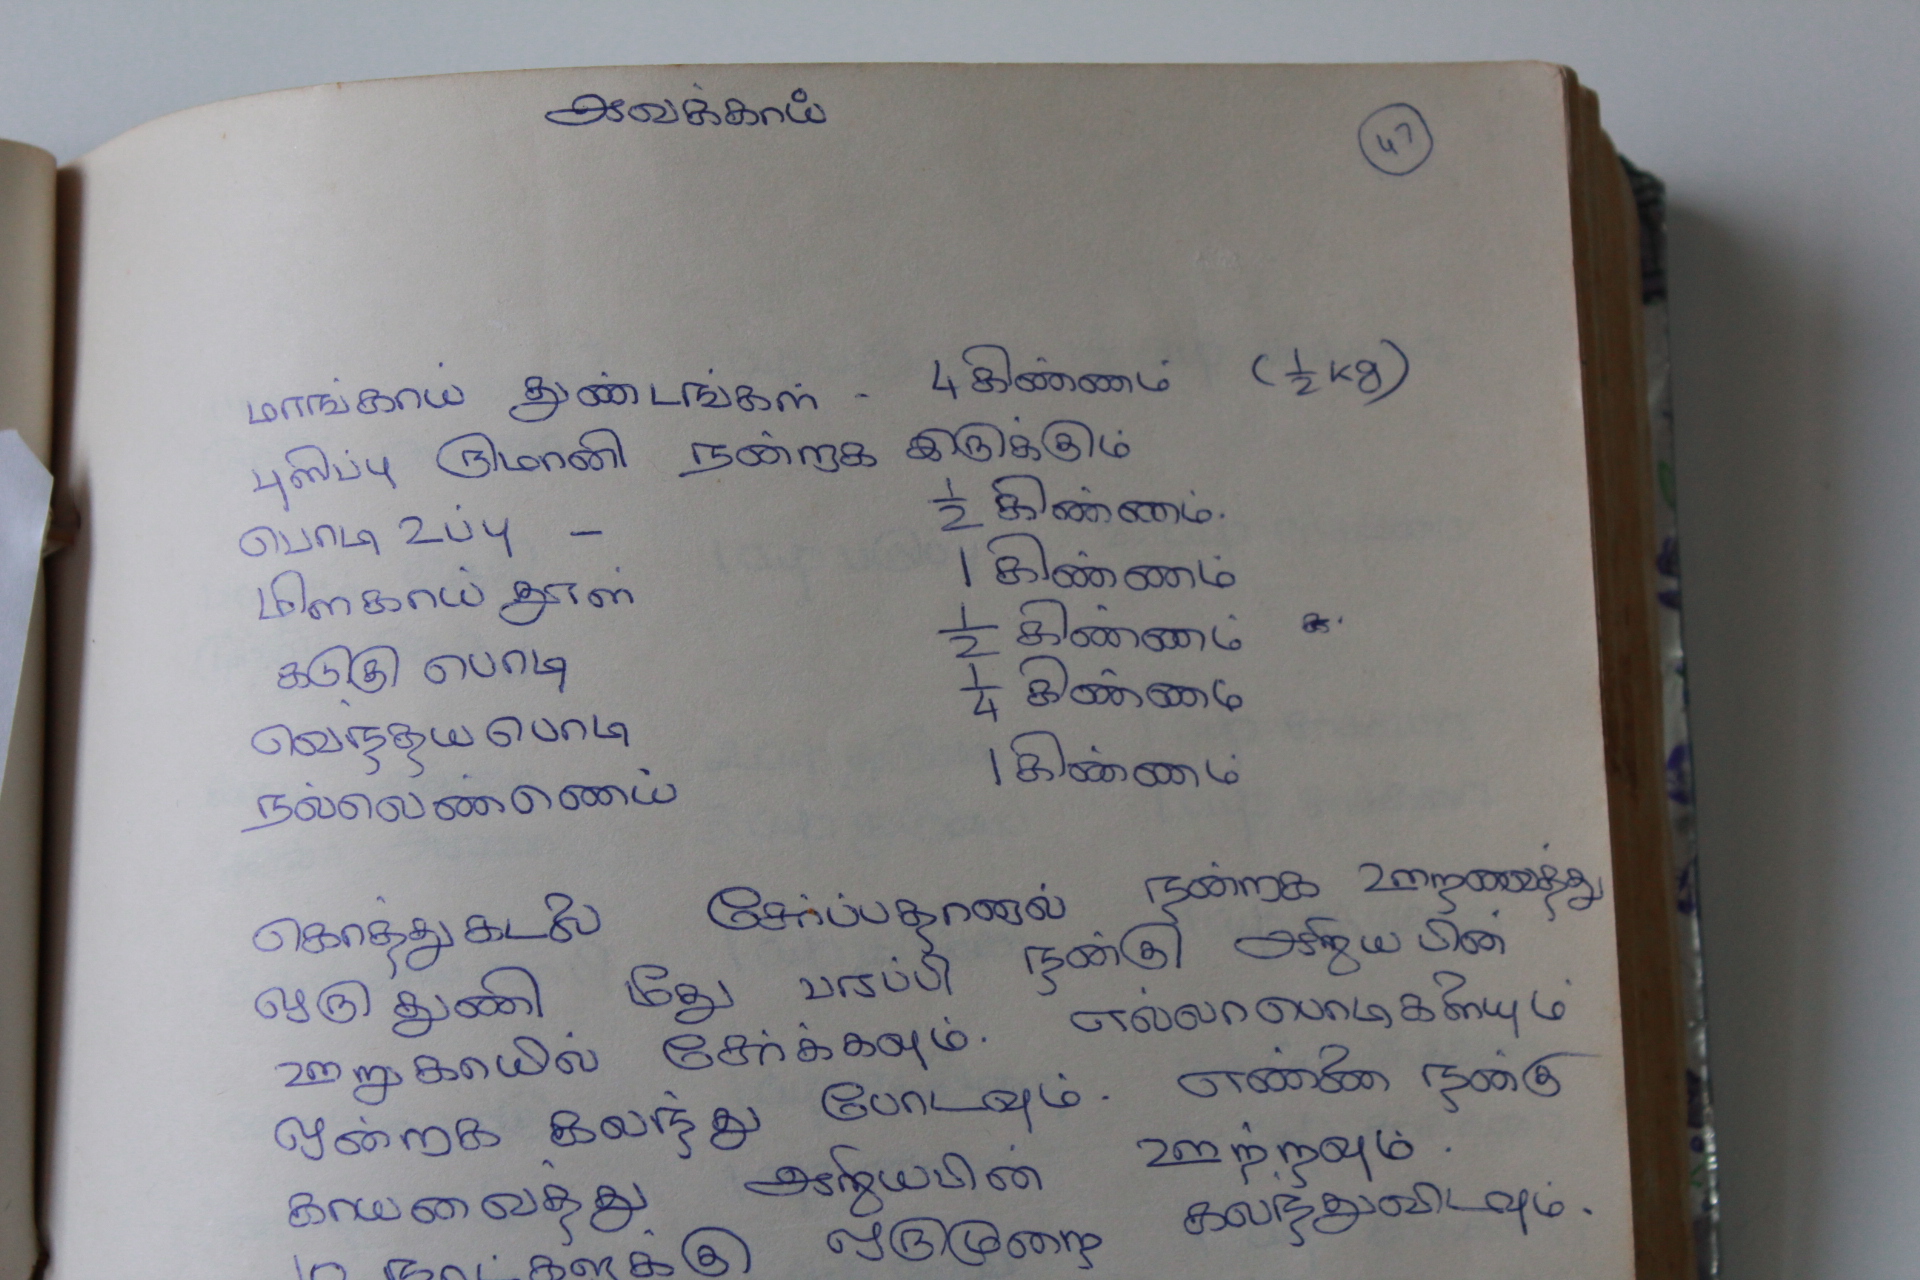 ஆவக்காய்
47
மாங்காய் துண்டங்கள் - 4 கிண்ணம் (½ kg)
புளிப்பு ருமானி நன்றாக இருக்கும்
பொடி உப்பு - ½ கிண்ணம்.
மிளகாய் தூள் 1 கிண்ணம்
கடுகு பொடி ½ கிண்ணம்
வெந்தய பொடி ¼ கிண்ணம்
நல்லெண்ணெய் 1 கிண்ணம்
கொத்துகடலை சேர்ப்பதானால் நன்றாக ஊறவைத்து
ஒரு துணி மீது பரப்பி நன்கு ஆறிய பின்
ஊறுகாயில் சேர்க்கவும். எல்லா பொடிகளையும்
ஒன்றாக கலந்து போடவும். எண்ணை நன்கு
காயவைத்து ஆறியபின் ஊற்றவும்.
10 நாட்களுக்கு ஒருமுறை கலந்துவிடவும்.